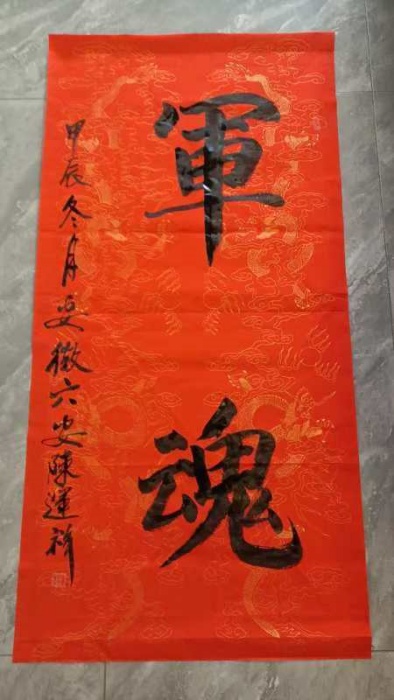 軍魂
甲辰冬月安徽六安陳運祥